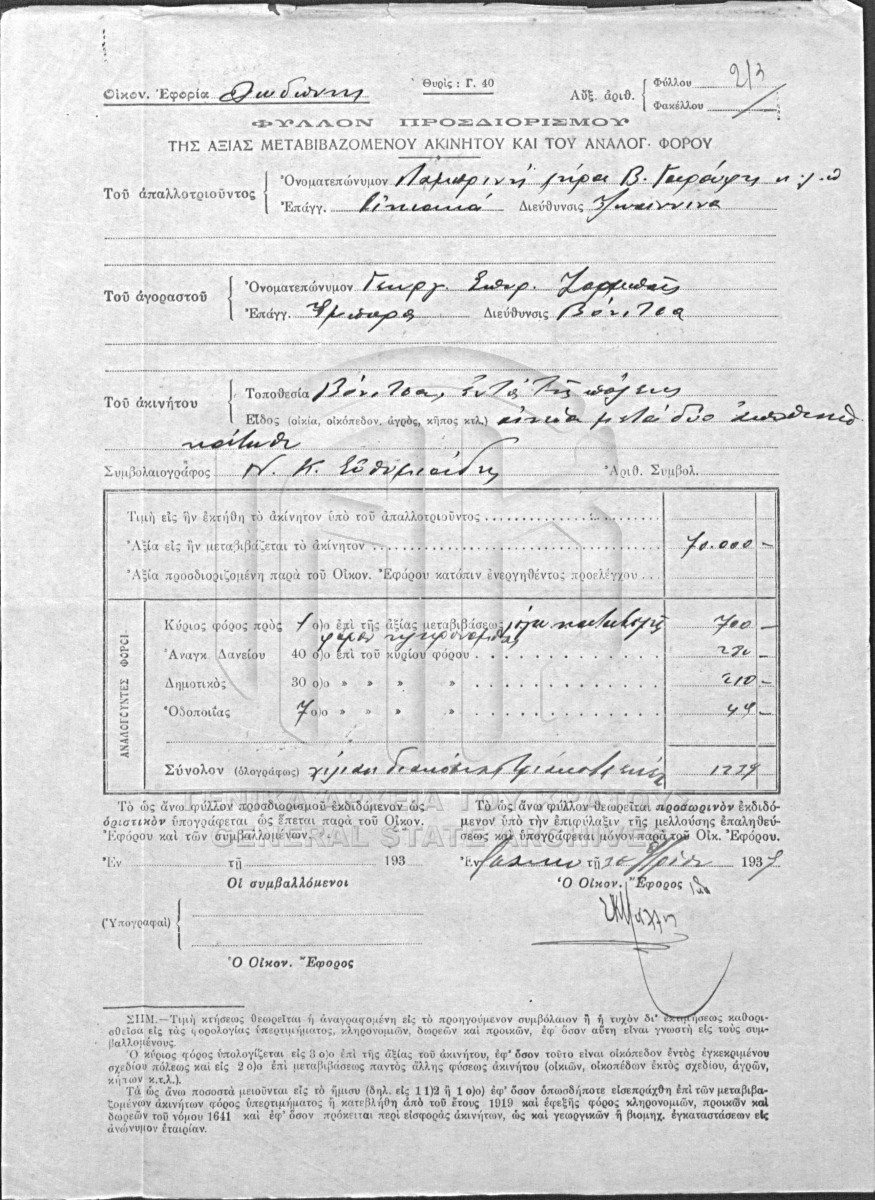 Οἰκον. Ἐφορία
Θυρὶς : Γ. 40
Αὔξ. ἀριθ. Φύλλου 213
Φακέλλου
ΦΥΛΛΟΝ ΠΡΟΣΔΙΟΡΙΣΜΟΥ
ΤΗΣ ΑΞΙΑΣ ΜΕΤΑΒΙΒΑΖΟΜΕΝΟΥ ΑΚΙΝΗΤΟΥ ΚΑΙ ΤΟΥ ΑΝΑΛΟΓ. ΦΟΡΟΥ
Τοῦ ἀπαλλοτριοῦντος Ὀνοματεπώνυμον Λαμπρινὴ χήρα Β.
Ἐπάγγ. οἰκιακὰ Διεύθυνσις Ἰωάννινα
Τοῦ ἀγοραστοῦ Ὀνοματεπώνυμον Γεωργ. Σπυρ.
Ἐπάγγ. Διεύθυνσις Βόνιτσα
Τοῦ ἀκινήτου Τοποθεσία Βόνιτσα, ἐντὸς τῆς πόλεως
Εἶδος (οἰκία, οἰκόπεδον, ἀγρός, κῆπος κτλ.) οἰκία μετὰ δύο
Συμβολαιογράφος Ν. Κ. Εὐθυμιάδης Ἀριθ. Συμβολ.
Τιμὴ εἰς ἣν ἐκτήθη τὸ ἀκίνητον ὑπὸ τοῦ ἀπαλλοτριοῦντος
Ἀξία εἰς ἣν μεταβιβάζεται τὸ ἀκίνητον 70.000 –
Ἀξία προσδιοριζομένη παρὰ τοῦ Οἰκον. Ἐφόρου κατόπιν ἐνεργηθέντος προελέγχου
ΑΝΑΛΟΓΟΥΝΤΕΣ ΦΟΡΟΙ
Κύριος φόρος πρὸς 1 ο)ο ἐπὶ τῆς ἀξίας μεταβιβάσεως λόγω καταβολῆς 700 –
φόρου κληρονομίας
Ἀναγκ. Δανείου 40 ο)ο ἐπὶ τοῦ κυρίου φόρου 280 –
Δημοτικὸς 30 ο)ο » » » » 210 –
Ὁδοποιΐας 7 ο)ο » » » » 49 –
Σύνολον (ὁλογράφως) χίλιαι διακόσιαι τριάκοντα ἐννέα 1239
Τὸ ὡς ἄνω φύλλον προσδιορισμοῦ ἐκδιδόμενον ὡς
ὁριστικὸν ὑπογράφεται ὡς ἕπεται παρὰ τοῦ Οἰκον.
Ἐφόρου καὶ τῶν συμβαλλομένων.
Ἐν τῇ 193
Οἱ συμβαλλόμενοι
(Ὑπογραφαὶ)
Ὁ Οἰκον. Ἔφορος
Τὸ ὡς ἄνω φύλλον θεωρεῖται προσωρινὸν ἐκδιδόμενον ὑπὸ τὴν ἐπιφύλαξιν τῆς μελλούσης ἐπαληθεύσεως καὶ ὑπογράφεται μόνον παρὰ τοῦ Οἰκ. Ἐφόρου.
Ἐν τῇ 1937
Ὁ Οἰκον. Ἔφορος
ΓΕΝΙΚΑ ΑΡΧΕΙΑ ΤΟΥ ΚΡΑΤΟΥΣ
GENERAL STATE ARCHIVES
ΣΗΜ.—Τιμὴ κτήσεως θεωρεῖται ἡ ἀναγραφομένη εἰς τὸ προηγούμενον συμβόλαιον ἢ ἡ τυχὸν δι' ἐκτιμήσεως καθορι-
σθεῖσα εἰς τὰς φορολογίας ὑπερτιμήματος, κληρονομιῶν, δωρεῶν καὶ προικῶν, ἐφ' ὅσον αὕτη εἶναι γνωστὴ εἰς τοὺς συμ-
βαλλομένους.
Ὁ κύριος φόρος ὑπολογίζεται εἰς 3 ο)ο ἐπὶ τῆς ἀξίας τοῦ ἀκινήτου, ἐφ' ὅσον τοῦτο εἶναι οἰκόπεδον ἐντὸς ἐγκεκριμένου
σχεδίου πόλεως καὶ εἰς 2 ο)ο ἐπὶ μεταβιβάσεως παντὸς ἄλλης φύσεως ἀκινήτου (οἰκιῶν, οἰκοπέδων ἐκτὸς σχεδίου, ἀγρῶν,
κήπων κ.τ.λ.).
Τὰ ὡς ἄνω ποσοστὰ μειοῦνται εἰς τὸ ἥμισυ (δηλ. εἰς 1 1)2 ἢ 1 ο)ο) ἐφ' ὅσον ὁπωσδήποτε εἰσεπράχθη ἐπὶ τῶν μεταβιβα-
ζομένων ἀκινήτων φόρος ὑπερτιμήματος ἢ κατεβλήθη ἀπὸ τοῦ ἔτους 1919 καὶ ἐφεξῆς φόρος κληρονομιῶν, προικῶν καὶ
δωρεῶν τοῦ νόμου 1641 καὶ ἐφ' ὅσον πρόκειται περὶ εἰσφορᾶς ἀκινήτων, ὡς καὶ γεωργικῶν ἢ βιομηχ. ἐγκαταστάσεων εἰς
ἀνώνυμον ἑταιρίαν.